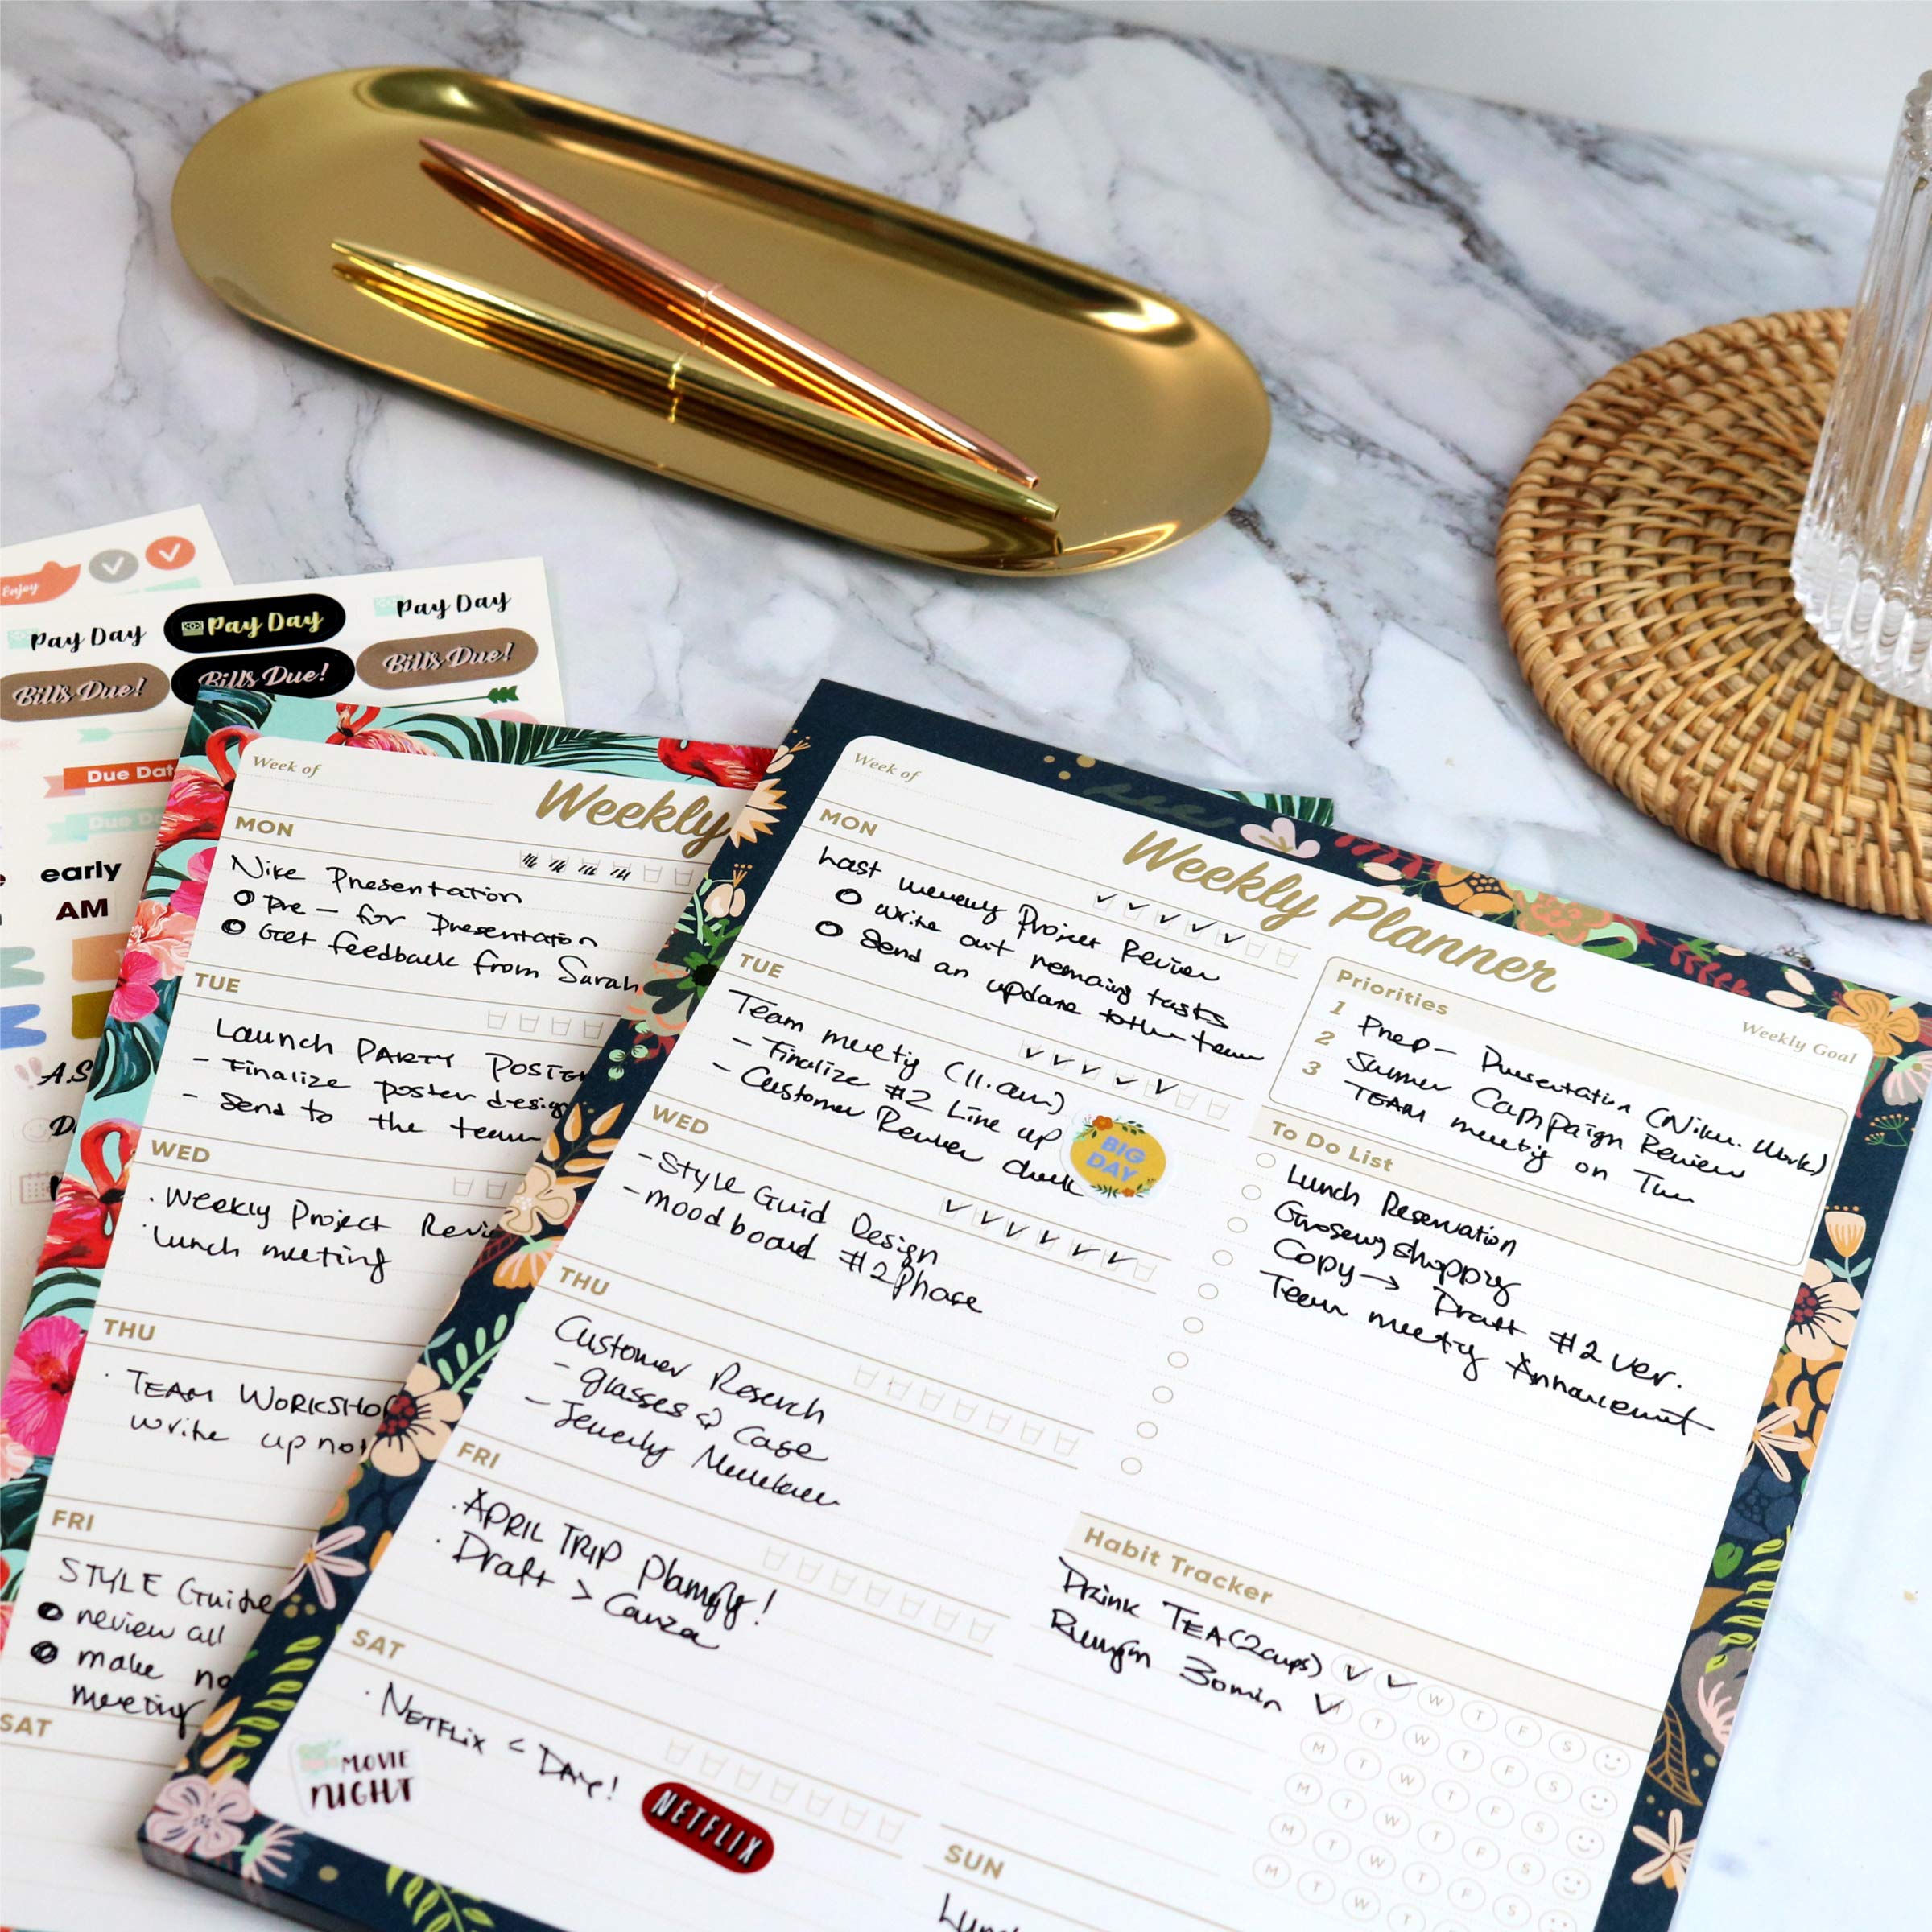 Enjoy
Pay Day
Pay Day
Pay Day
Bills Due!
Bills Due!
Bills Due!
Due Dat
Due Da
early
AM
Week of
Weekly
MON
Nike Presentation
Pre - for Presentation
Get feedback from Sarah
TUE
Launch PARTY POSTE
- Finalize poster design
- Send to the team
WED
· Weekly Project Revie
· Lunch meeting
THU
· TEAM WORKSHO
write up not
FRI
STYLE Guide
review all
make no
meeting
SAT
Week of
Weekly Planner
MON
Last Project Review
write out remaing tasks
Send an update to the team
TUE
Team meetig (11.am)
- Finalize #2 Line up
- Customer Review check
BIG
DAY
WED
- Style Guid Design
- mood board #2 Phase
THU
Customer Reserch
- glasses & Case
- Jewerly
FRI
· APRIL TRIP Planning!
· Draft > Canva
SAT
· NETFLIX < DAY!
MOVIE
NIGHT
NETFLIX
Weekly Goal
Priorities
1 Prep - Presentation (Nike. Work)
2 Summer Campaign Review
3 TEAM meetig on Tue
To Do List
Lunch Reservation
Grosery shopping
Copy → Draft #2 ver.
Team meetig
Habit Tracker
Drink TEA (2cups)
30min
W T F S
M T W T F S
M T W T F S
M T W T F S
M T W T F S
SUN